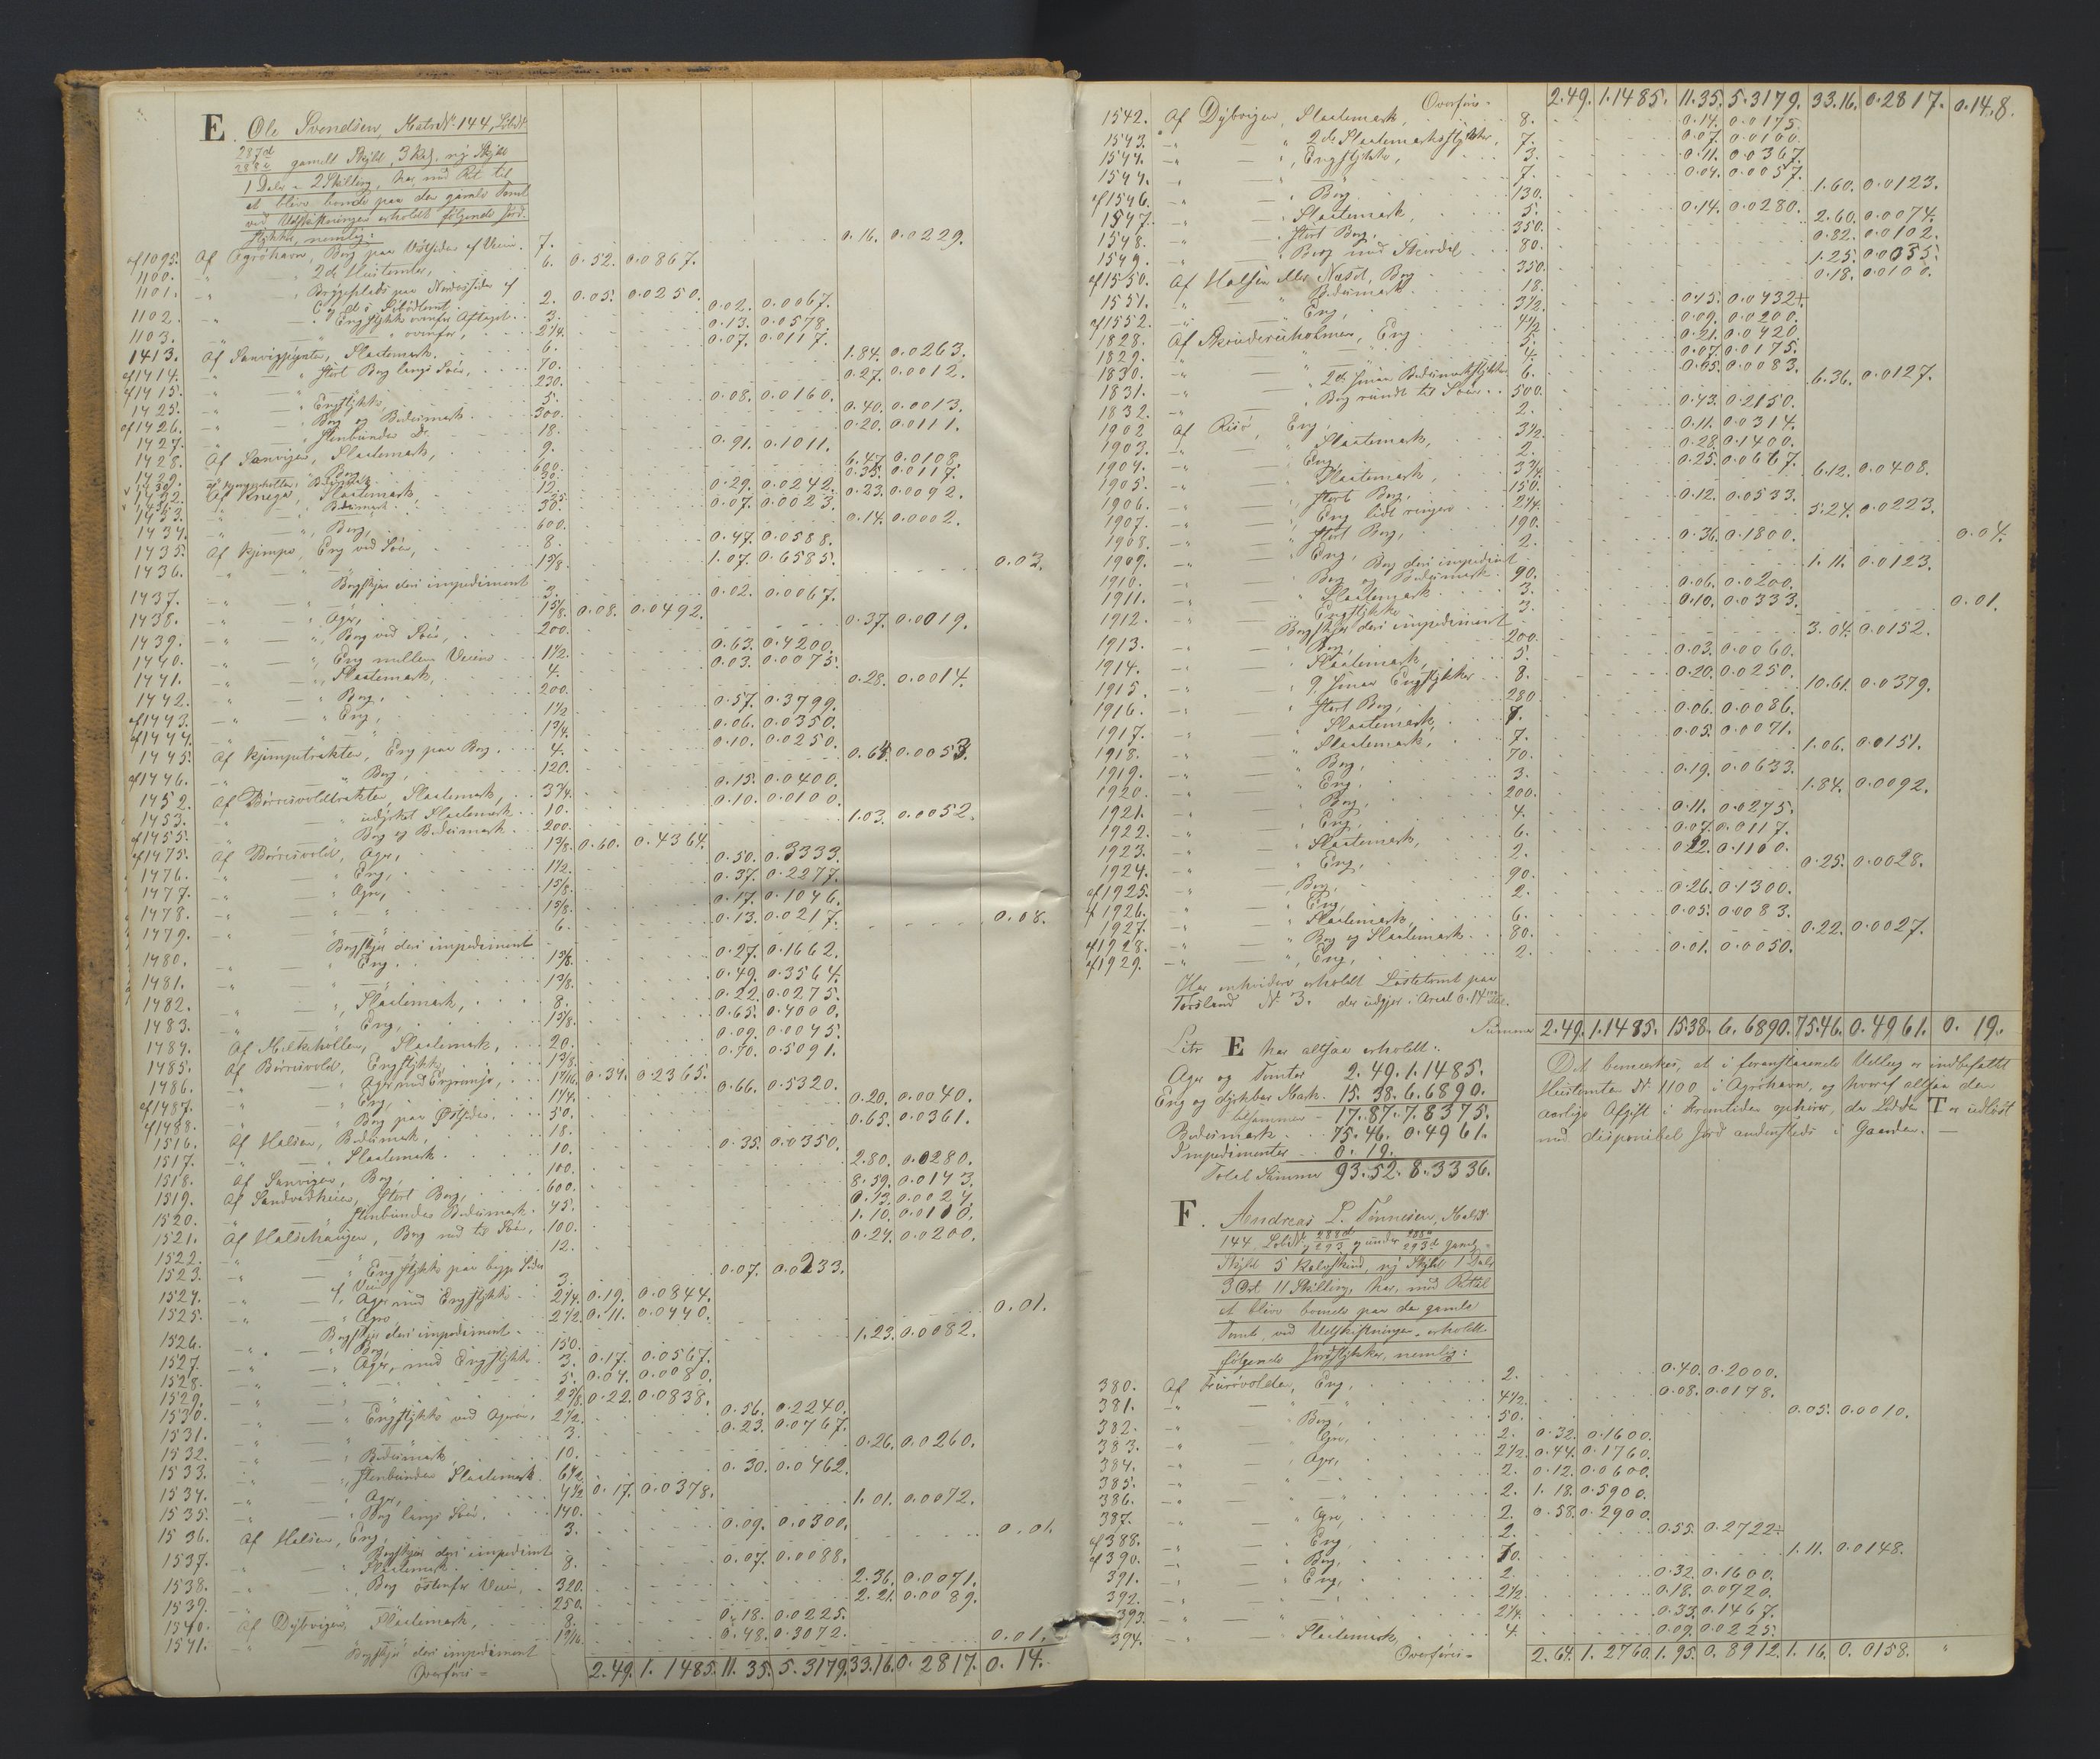 E. Ole Svendsen, Matr. Nº 144, Lob Nº
287d 288c gamelt Skyld, 3 Kalvs. ny Skyld
1 Daler - 2 Skilling, har, med Ret til
at blive boende paa den gamle Tomt
ved Udskiftningen erholdt følgende Jord-
stykker, nemlig:
af 1095. Af Agrehavn, Berg paa Vestsiden af Veien. 7. 0.16. 0.0229.
1100. 2de Hustomter, 6. 0.52. 0.0867.
1101. Bryggeplads paa Nordresiden af 2. 0.05. 0.0250.
1102. Engstykke ovenfor 3. 0.02. 0.0067.
1103. ovenfor, 2¼. 0.13. 0.0578.
1413. Af Sanvigpynten, Slaattemark. 6. 0.07. 0.0117.
af 1414. Stort Berg langs Søen, 70. 1.84. 0.0263.
af 1415. 230. 0.27. 0.0012.
1425. Engstykke 5. 0.08. 0.0160.
af 1426. Berg og Bedesmark. 300. 0.40. 0.0013.
1427. Stenbunden D. 18. 0.20. 0.0111.
1428. Af Sanvigen, Slaattemark, 9. 0.91. 0.1011.
1429. Berg, 600. 6.47. 0.0108.
30. 0.35. 0.0117.
1432. Af Knega, Slaattemark, 12. 0.29. 0.0242.
1433. Bedesmark. 0.23. 0.0092.
30. 0.07. 0.0023.
1434. Berg, 600. 0.14. 0.0002.
1435. Af Kjempe, Eng ved Søen, 8. 0.47. 0.0588.
1436. 1⅝. 1.07. 0.6585.
Bergskjær deri impediment 0.03.
1437. 3. 0.02. 0.0067.
1438. Ager, 1⅝. 0.08. 0.0492.
1439. Berg ved Søen, 200. 0.37. 0.0019.
1440. Eng mellem Veiene 1½. 0.63. 0.4200.
1441. Slaattemark, 4. 0.03. 0.0075.
1442. Berg, 200. 0.28. 0.0014.
af 1443. Eng, 1½. 0.57. 0.3799.
af 1444. 1¾. 0.06. 0.0350.
1445. Af Kjempetrakten, Eng paa Berg. 4. 0.10. 0.0250.
af 1446. Berg, 120. 0.64. 0.0053.
1452. Af Børresvoldtrakten, Slaattemark, 3¾. 0.15. 0.0400.
1453. udyrket Slaattemark 10. 0.10. 0.0100.
af 1455. Berg og Bedesmark 200. 1.03. 0.0052.
af 1475. Af Børresvold, Ager, 1⅜. 0.60. 0.4364.
1476. Eng, 1½. 0.50. 0.3333.
1477. Ager, 1⅝. 0.37. 0.2277.
1478. 1⅝. 0.17. 0.1046.
1479. 6. 0.13. 0.0217.
Bergskjær deri impediment 0.08.
1480. Eng. 1⅝. 0.27. 0.1662.
1481. 1⅜. 0.49. 0.3564.
1482. Slaattemark, 8. 0.22. 0.0275.
1483. Eng, 1⅝. 0.65. 0.4000.
1484. Af Melkehollen, Slaattemark, 20. 0.09. 0.0045.
1485. Af Børresvold, Engstykke 1⅜. 0.70. 0.5091.
1486. Ager med Engremse, 1 7/16. 0.34. 0.2365.
af 1487. Eng, 1¼. 0.66. 0.5320.
af 1488. Berg paa Østsiden. 50. 0.20. 0.0040.
1516. Af Halsen, Bedesmark, 18. 0.65. 0.0361.
1517. Slaattemark. 10. 0.35. 0.0350.
1518. Af Sanvigen, Berg, 100. 2.80. 0.0280.
1519. Af Sandvedheien, Stort Berg, 600. 8.59. 0.0143.
1520. Stenbunden Bedesmark. 45. 0.13. 0.0024.
1521. Af Halsehaugen, Berg ned til Søen, 100. 1.10. 0.0110.
1522. 12. 0.24. 0.0200.
1523. Engstykke paa begge Sider
af Veien 3. 0.07. 0.0233.
1524. Ager med Engstykke 2¼. 0.19. 0.0844.
1525. Ager 2½. 0.11. 0.0440.
Bergskjær deri impediment 0.01.
1526. Berg, 150. 1.23. 0.0082.
1527. Ager, med Engstykke 3. 0.17. 0.0567.
1528. 5. 0.04. 0.0080.
1529. 2⅝. 0.22. 0.0838.
1530. Engstykke ved Ageren, 2½. 0.56. 0.2240.
1531. 3. 0.23. 0.0767.
1532. Bedesmark, 10. 0.26. 0.0260.
1533. Stenbunden Slaattemark 6½. 0.30. 0.0462.
1534. Ager, 4½. 0.17. 0.0378.
1535. Berg langs Søen, 140. 1.01. 0.0072.
1536. Af Halsen, Eng, 3. 0.09. 0.0300.
Bergskjær deri impediment 0.01.
1537. Slaattemark. 8. 0.07. 0.0088.
1538. Berg østenfor Veien, 320. 2.36. 0.0071.
1539. 250. 2.21. 0.0089.
1540. Af Dybvigen, Slaattemark, 8. 0.18. 0.0225.
1541. 1 9/16. 0.48. 0.3072.
Bergskjær deri impediment 0.01.
Overføres = 2.49. 1.1485. 11.35. 5.3179. 33.16. 0.2817. 0.14.
Overført = 2.49. 1.1485. 11.35. 5.3179. 33.16. 0.2817. 0.14.8.
1542. Af Dybvigen, Slaattemark, 8. 0.14. 0.0175.
1543. 2de Slaattemarksstykker, 7. 0.07. 0.0100.
1544. Engstykke, 3. 0.11. 0.0367.
1544. 7. 0.04. 0.0057.
af 1546. Berg 130. 1.60. 0.0123.
1547. Slaattemark, 5. 0.14. 0.0280.
1548. Stort Berg, 350. 2.60. 0.0074.
1549. Berg med Skurdal 80. 0.82. 0.0102.
af 1550. Af Halsen eller Næset, Berg 350. 1.25. 0.0035.
1551. Bedesmark. 18. 0.18. 0.0100.
af 1552. Eng, 3½. 0.15. 0.0432+.
1828. Af Skruderuholmen, Eng 4½. 0.09. 0.0200.
1829. 5. 0.21. 0.0420.
1830. 4. 0.07. 0.0175.
1831. 2de smaa Bedesmarkstykker 6. 0.05. 0.0083.
1832. Berg rundt til Søen 500. 6.36. 0.0127.
1902 Af Risø, Eng, 2. 0.43. 0.2150.
1903. Slaattemark, 3½. 0.11. 0.0314.
1904. Eng, 2. 0.28. 0.1400.
1905. Slaattemark, 3¾. 0.25. 0.0667.
1906. Stort Berg, 150. 6.12. 0.0408.
1907. Eng lidt ringere 2¼. 0.12. 0.0533.
1908. Stort Berg, 190. 5.24. 0.0223.
1909. Eng, 2. 0.36. 0.1800.
Berg deri impediment 0.04.
1910. Berg og Bedesmark. 90. 1.11. 0.0123.
1911. Slaattemark 3. 0.06. 0.0200.
1912. Engstykke 3. 0.10. 0.0333.
Bergskjær deri impediment 0.01.
1913. Berg, 200. 3.04. 0.0152.
1914. Slaattemark, 5. 0.03. 0.0060.
1915. 9 smaa Engstykker 8. 0.20. 0.0250.
1916. Stort Berg, 280. 10.61. 0.0379.
1917. Slaattemark, 7. 0.06. 0.0086.
1918. Slaattemark, 7. 0.05. 0.0071.
1919. Berg, 70. 1.06. 0.0151.
1920. Eng, 3. 0.19. 0.0633.
1921. Berg, 200. 1.84. 0.0092.
1922. Eng, 4. 0.11. 0.0275.
1923. Slaattemark, 6. 0.07. 0.0117.
1924. Eng, 2. 0.22. 0.1100.
af 1925. Berg, 90. 0.25. 0.0028.
af 1926. Eng, 2. 0.26. 0.1300.
1927. Slaattemark, 6. 0.05. 0.0083.
af 1928. Berg og Slaattemark 80. 0.22. 0.0027.
af 1929. Eng, 2. 0.01. 0.0050.
Har endvidere erholdt Løstetomt paa
Torsland Nº 3. der udgjør i Areal 0.14
Summa 2.49. 1.1485. 15.38. 6.6890. 75.46. 0.4961. 0.19.
Litr E har altsaa erholdt:
Ager og Tomter 2.49. 1.1485.
Eng og dyrkbar Mark. 15.38. 6.6890.
tilsammen 17.87. 7.8375.
Bedesmark 75.46. 0.4961.
Impedimenter 0.19.
Total Summa 93.52. 8.3336.
Det bemærkes, at i foranstaaende Udlæg er indbefattet
Hustomten Nº 1100 i Agrehavn, og hvoraf altsaa den
aarlige Afgift i Fremtiden ophører, da Lodden T er udløst
med disponibel Jord andensteds i Gaarden.
F. Andreas L. Tønnesen, Matr Nº
144. Lob Nº 288d 293 og under 288 293d gamle
Skyld 5 Kalvskind, ny Skyld 1 Daler
3 Ort 11 Skilling, har, med Ret til
at blive boende paa den gamle
Tomt, ved Udskiftningen erholdt
følgende Jordstykker, nemlig:
380. Af Turrvolden, Eng, 2. 0.40. 0.2000.
381. 4½. 0.08. 0.0178.
382. Berg, 50. 0.05. 0.0010.
383. Ager, 2. 0.32. 0.1600.
384. Ager, 2½. 0.44. 0.1760.
385. 2. 0.12. 0.0600.
386. 2. 1.18. 0.5900.
387. Ager, 2. 0.58. 0.2900.
af 388. Eng, 2. 0.55. 0.2722÷
af 390. Berg, 70. 1.11. 0.0148.
391. Eng, 2. 0.32. 0.1600.
392. 2½. 0.18. 0.0720.
393. 2¼. 0.33. 0.1467.
394. Slaattemark, 4. 0.09. 0.0225.
Overføres = 2.64. 1.2760. 1.95. 0.8912. 1.16. 0.0158. "